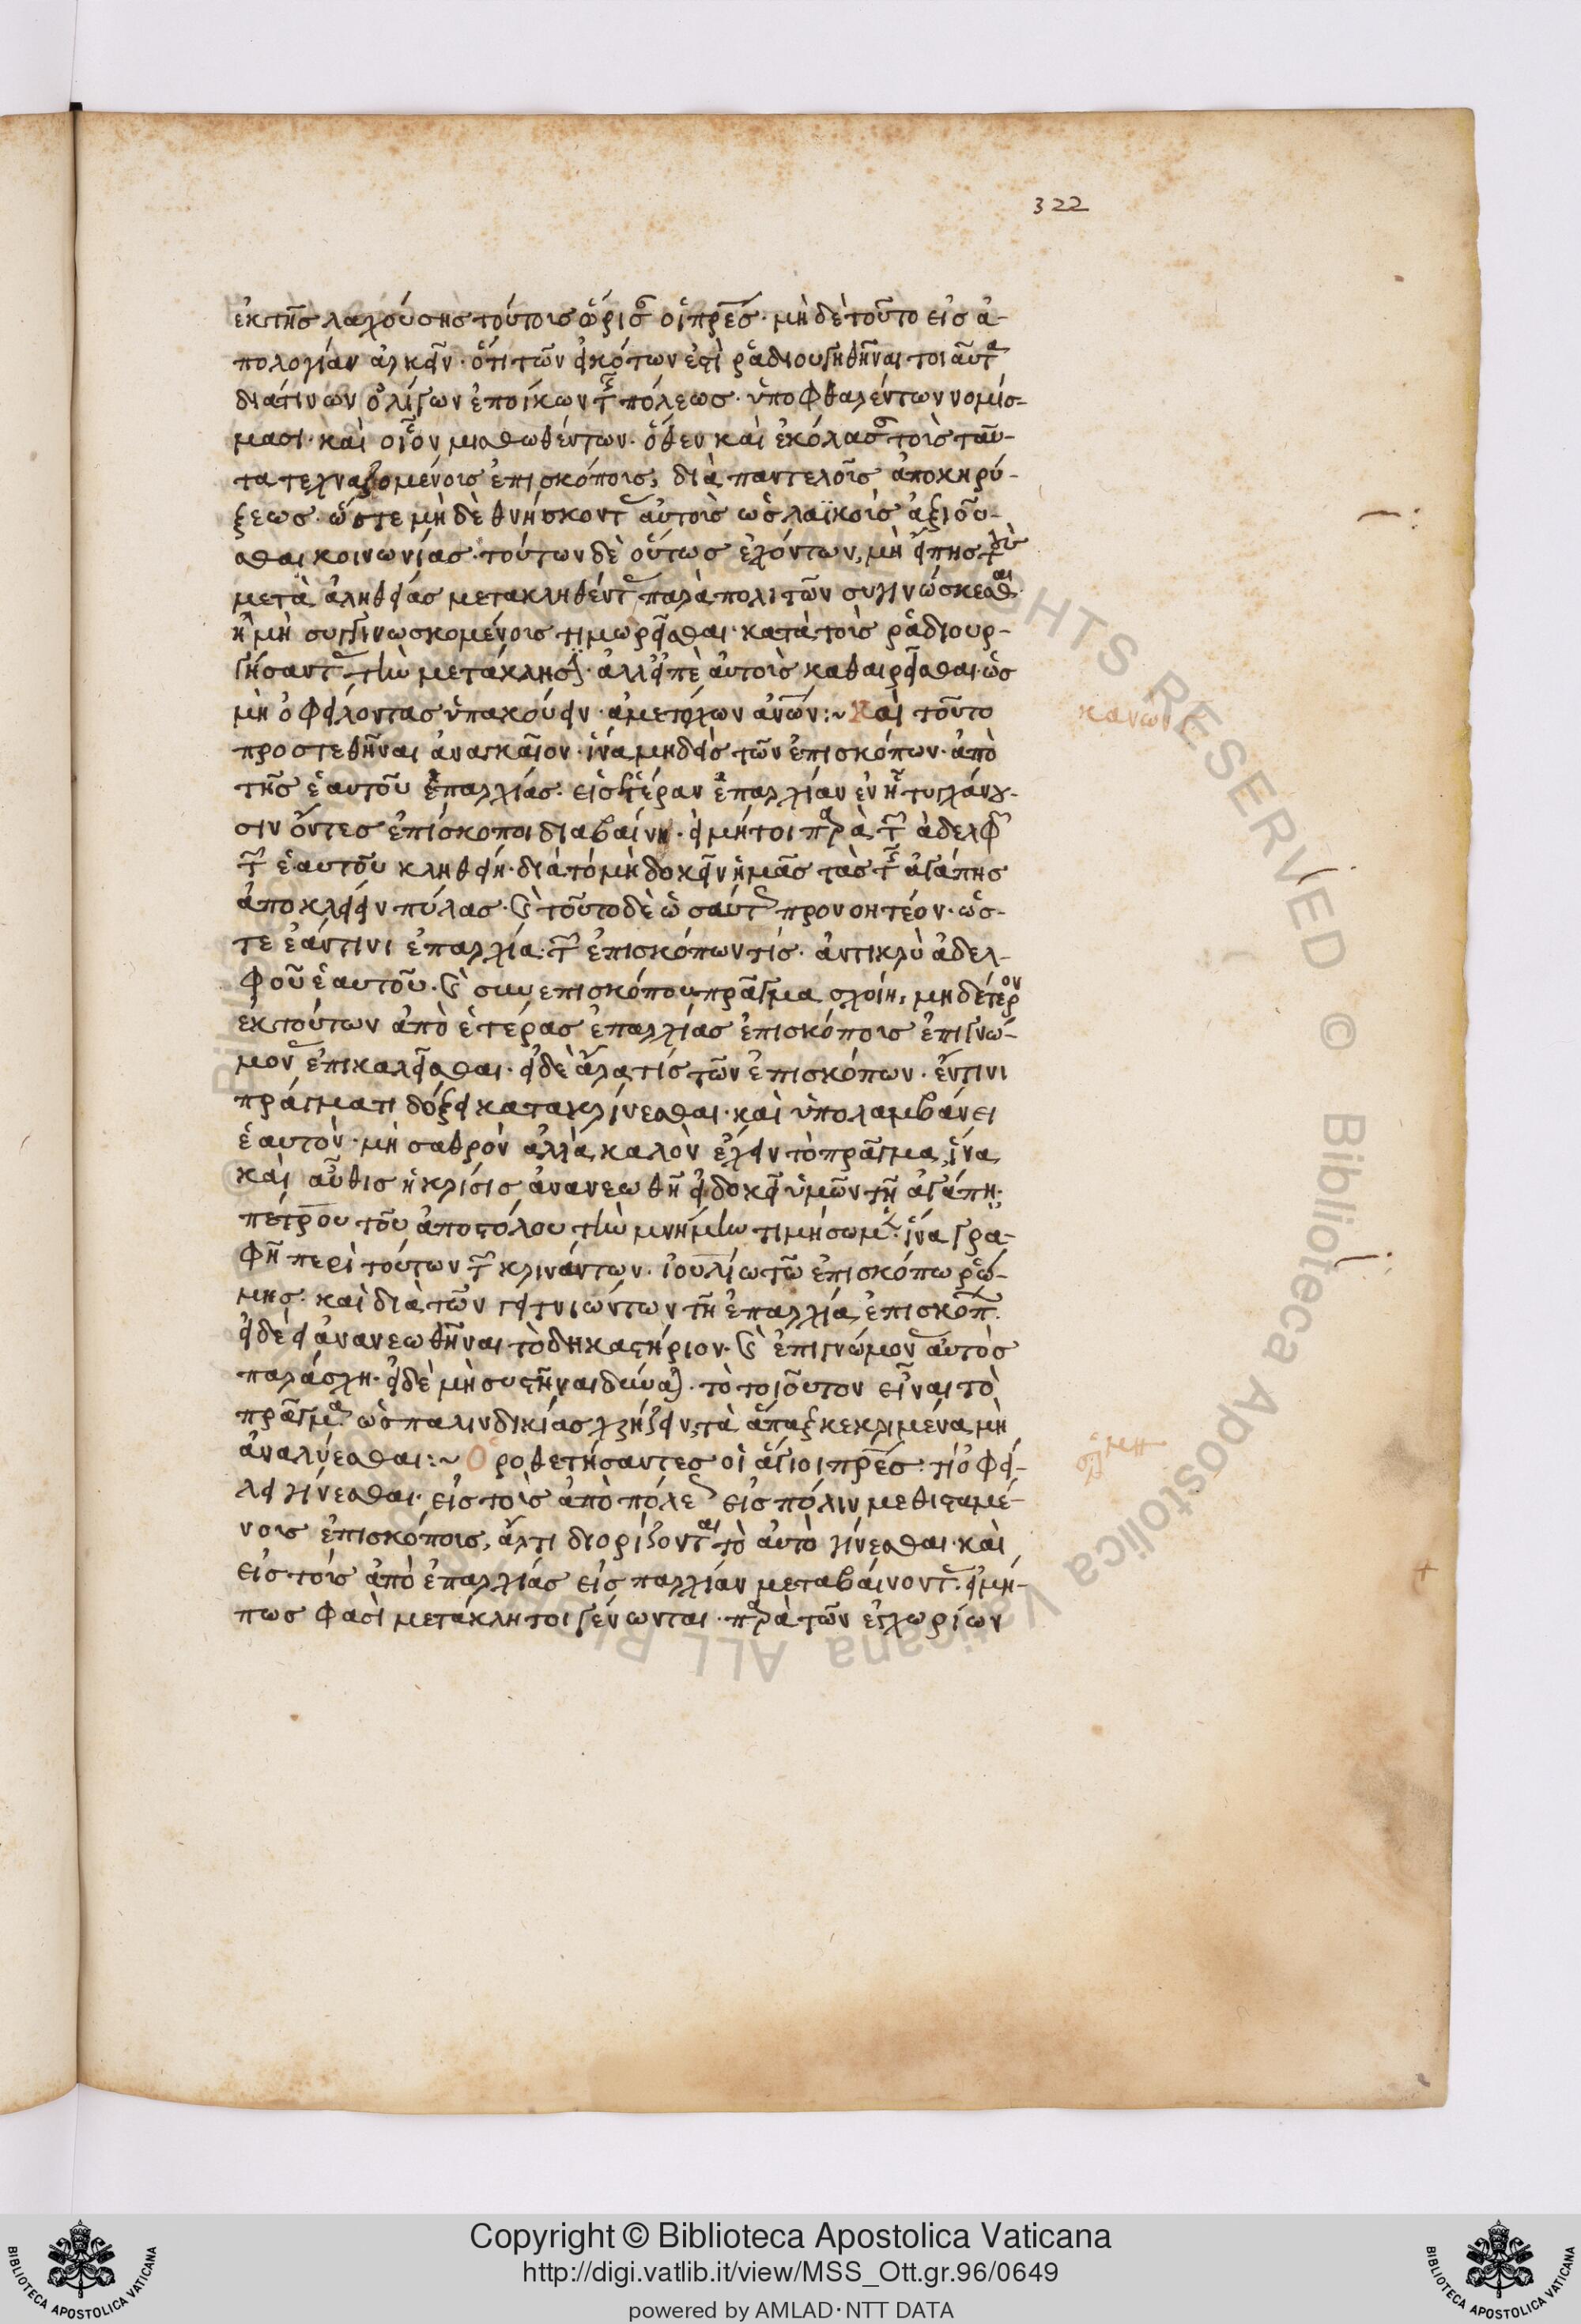 322
ἐκ τῆς λαχούσης τούτοις ὥρισαν οἱ πρες· μὴ δὲ τοῦτο εἰς ἀ-
πολογίαν ἀρκεῖν· ὅτι τῶν εἰκότων ἐστὶ ῥαδιουργηθῆναι τοιαῦτα
διά τινων ὀλίγων ἐποίκων τῆς πόλεως· ὑποφθαρέντων νομίσ-
μασι· καὶ οἷον μισθωθέντων· ὅθεν καὶ ἐκόλασαν τοὺς ταῦ-
τα τεχναζομένους ἐπισκόπους, διὰ παντελοῦς ἀποκηρύ-
ξεως· ὥστε μὴ δὲ θνήσκοντας αὐτοὺς ὡς λαϊκοὺς ἀξιοῦ-
σθαι κοινωνίας· τούτων δὲ οὕτως ἐχόντων, μὴ εἴπῃς τοὺς
μετὰ ἀληθείας μετακληθέντας παρὰ πολιτῶν συγινώσκεσθαι
ἢ μὴ συγγινωσκομένους τιμωρεῖσθαι· κατὰ τοὺς ῥαδιουρ-
γήσαντας τὴν μετάκλησιν· ἀλλ' εἰπὲ αὐτοὺς καθαιρεῖσθαι ὡς
μὴ ὀφείλοντας ὑπακούειν ἀμετόχων ἀνων:~ Καὶ τοῦτο
κανων
προστεθῆναι ἀναγκαῖον· ἵνα μηδεὶς τῶν ἐπισκόπων· ἀπὸ
τῆς ἑαυτοῦ ἐπαρχίας· εἰς ἑτέραν ἐπαρχίαν ἐν ᾗ τυγχάνου-
σιν ὄντες ἐπίσκοποι διαβαίνῃ· εἰ μήτοι παρὰ τῶν ἀδελφῶν
τῶν ἑαυτοῦ κληθείη· διὰ τὸ μὴ δοκεῖν ἡμᾶς τὰς τῆς ἀγάπης
ἀποκλείειν πύλας· καὶ τοῦτο δὲ ὡσαύτως προνοητέον· ὥσ-
τε ἐὰν τινι ἐπαρχία· τῶν ἐπισκόπων τίς· ἀντικρὺ ἀδελ-
φοῦ ἑαυτοῦ· καὶ συνεπισκόπου πρᾶγμα σχοίη, μηδέτερον
ἐκ τούτων ἀπὸ ἑτέρας ἐπαρχίας ἐπισκόπους ἐπιγνώ-
μονας ἐπικαλεῖσθαι· εἰ δὲ ἄρα τίς τῶν ἐπισκόπων· ἔν τινι
πράγματι δόξει κατακρίνεσθαι· καὶ ὑπολαμβάνει
ἑαυτὸν· μὴ σαθρὸν ἀλλὰ καλὸν ἔχειν τὸ πρᾶγμα, ἵνα
καὶ αὖθις ἡ κρίσις ἀνανεωθῇ εἰ δοκεῖ ὑμῶν τῇ ἀγάπῃ·
πέτρου τοῦ ἀποστόλου τὴν μνήμην τιμήσωμεν· ἵνα γρα-
φῇ περὶ τούτων τῶν κρινάντων· ἰουλίω τῶ ἐπισκόπω ῥώ-
μης· καὶ διὰ τῶν γειτνιώντων τῇ ἐπαρχία ἐπισκόπων.
εἰ δέει ἀνανεωθῆναι τὸ δικαστήριον· καὶ ἐπιγνώμονας αὐτὸς
παράσχη· εἰ δὲ μὴ συστῆναι δύναται· τὸ τοιοῦτον εἶναι τὸ
πρᾶγμα ὡς παλινδικίας χρήζειν, τὰ ἅπαξ κεκριμένα μὴ
ἀναλύεσθαι:~ Οροθετήσαντες οἱ ἅγιοι πρες· τί ὀφεί-
ἑρμη
λει γίνεσθαι· εἰς τοὺς ἀπὸ πόλεως εἰς πόλιν μεθισταμέ-
νους ἐπισκόπους, ἄρτι διορίζονται τὸ αὐτὸ γίνεσθαι· καὶ
εἰς τοὺς ἀπὸ ἐπαρχίας εἰς παρχίαν μεταβαίνοντας· εἰ μή-
πως φασὶ μετάκλητοι γένωνται· παρὰ τῶν ἐγχωρίων
Copyright © Biblioteca Apostolica Vaticana
http://digi.vatlib.it/view/MSS_Ott.gr.96/0649
powered by AMLAD·NTT DATA
BIBLIOTECA APOSTOLICA VATICANA
BIBLIOTECA APOSTOLICA VATICANA
© Biblioteca Apostolica Vaticana ALL RIGHTS RESERVED